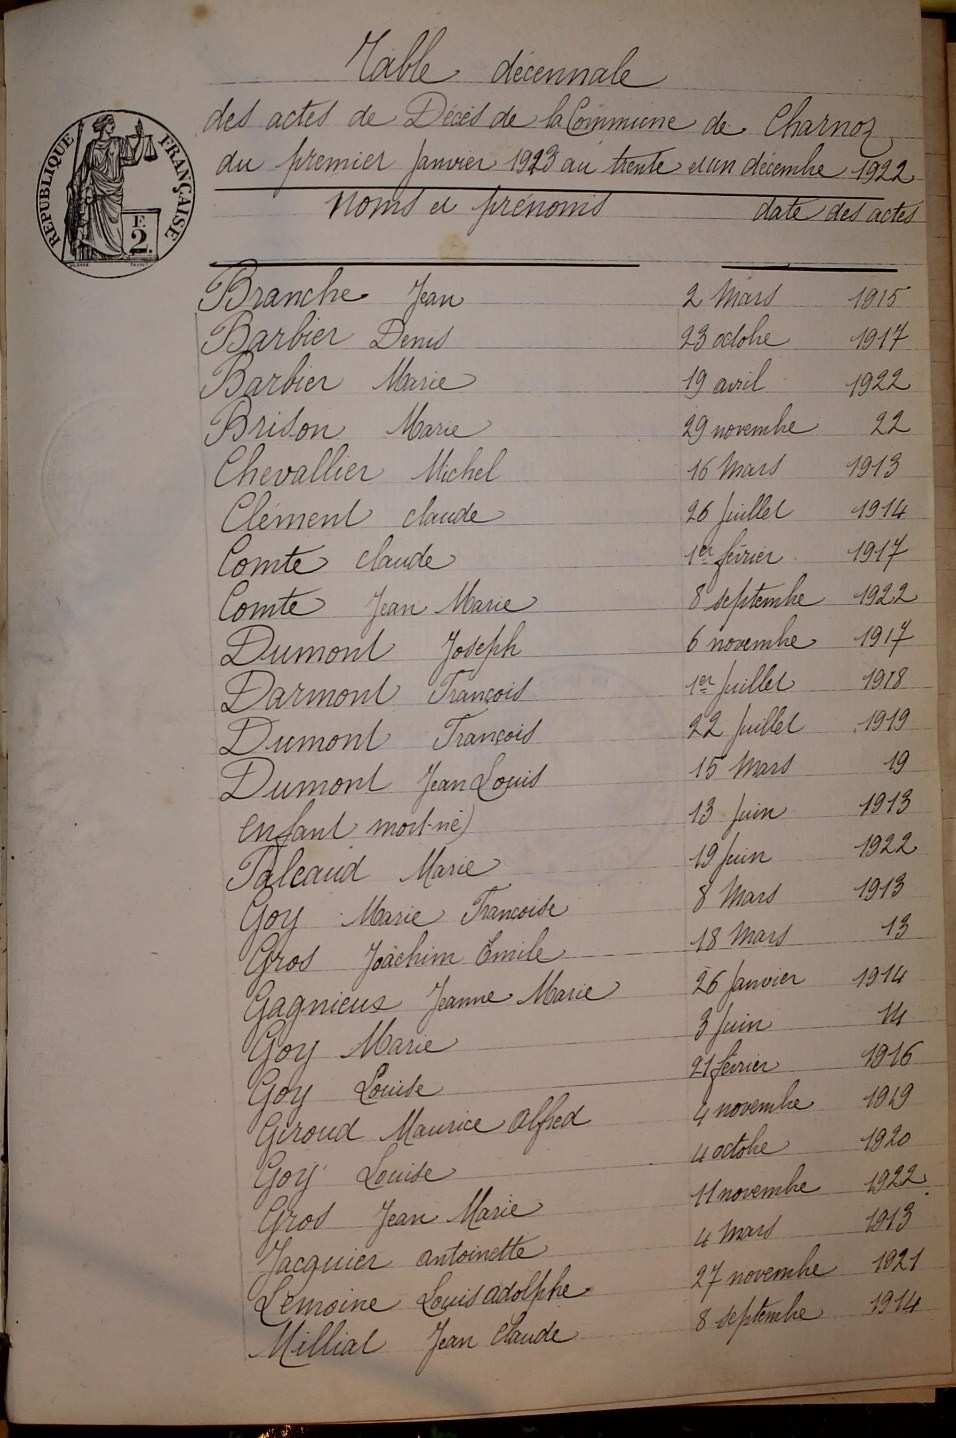 Table décennale
des actes de Décès de la Commune de Charnoz
du premier Janvier 1923 au trente et un décembre 1922
RÉPUBLIQUE FRANÇAISE
F.
2.
Noms et prénoms date des actes
Branche Jean 2 Mars 1915
Barbier Denis 23 octobre 1917
Barbier Marie 19 avril 1922
Brison Marie 29 novembre 22
Chevallier Michel 16 Mars 1913
Clément Claude 26 Juillet 1914
Comte Claude 1er février 1917
Comte Jean Marie 8 septembre 1922
Dumont Joseph 6 novembre 1917
Darmont François 1er Juillet 1918
Dumont François 22 Juillet 1919
Dumont Jean Louis 15 Mars 19
enfant mort-né) 13 Juin 1913
Falcaud Marie 19 Juin 1922
Goy Marie Francoise 8 Mars 1913
Gros Joachim Emile 18 Mars 13
Gagnieux Jeanne Marie 26 Janvier 1914
Goy Marie 3 Juin 14
Goy Louise 21 février 1916
Giroud Maurice Alfred 4 novembre 1919
Goy Louise 4 octobre 1920
Gros Jean Marie 11 novembre 1922
Jacquier antoinette 4 Mars 1913
Lemoine Louis adolphe 27 novembre 1921
Milliat Jean Claude 8 septembre 1914